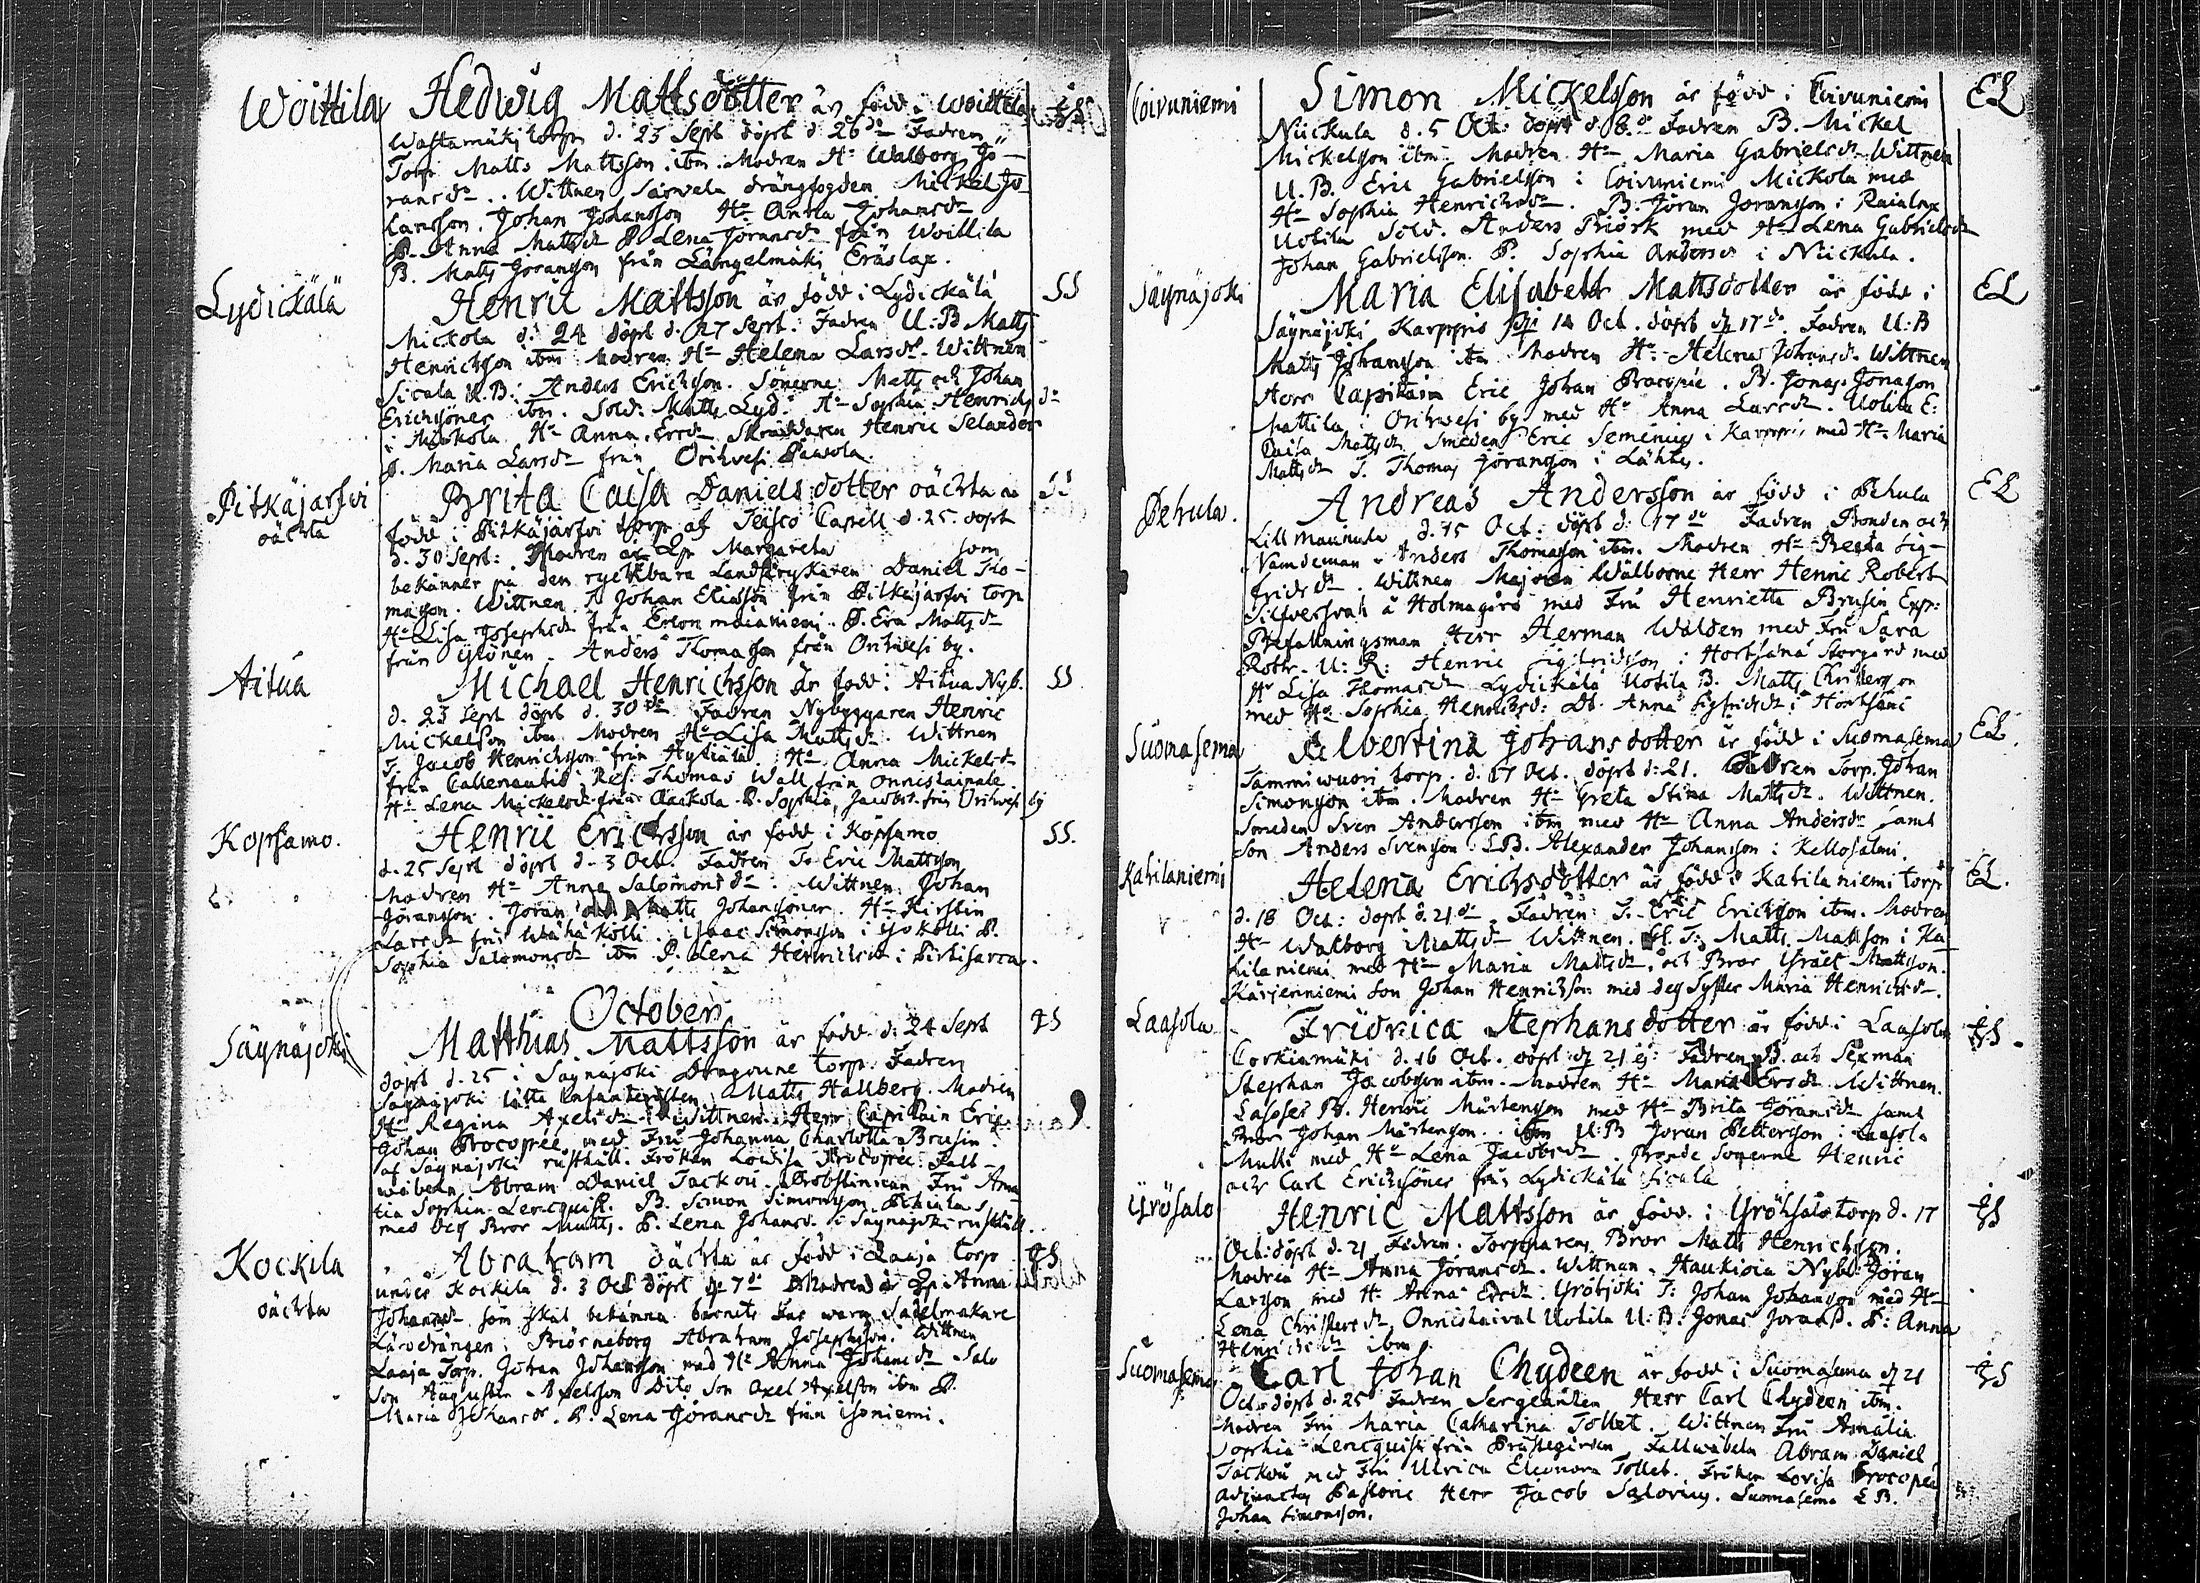 Woittila Hedwig Mattsdotter är född i Woittila
Wastamäki torp d. 23 Sept döpt d. 26do Fadren
Torp Matts Mattsson ibm. Modren Ho Walborg Jö-
ransdr. Wittnen Särvela drängfogden Mickel Jö
Larsson, Johan Johansson Ho Anna Johansdr
P. Anna Mattsdr P. Lena Jöransdr från Woittila
B. Matts Göransson från Längelmäki Eräslax.
Lydickälä Henric Mattsson är född i Lydickälä SS
Mickola d. 24 döpt d. 27 Sept: Fadren U:B Matts
Henricsson ibm Modren Ho Helena Larsdr. Wittnen
Sicala U.B: Anders Ericsson. Sönerne Matts och Johan
Ericssöner ibm. Sold: Matts Lyd: Ho Sophia Henrics dr
i Mickola Ho Anna Ersdr Skräddaren Henric Selander
P. Maria Larsdr från Orihvesi Paavola.
Pitkäjärfvi Brita Caisa Daniels dotter oächta SS
oächta född i Pitkäjärfvi torp af Teisco Capell d. 25. döpt
d. 30 Sept: Modren är Lp: Margareta som
bekänner på den ryckbara Landstrykaren Daniel Tho-
masson. Wittnen T. Johan Eliasson från Pitkäjärfvi torp
Ho Lisa Josephsdr från Eron maianiemi. P. Eva Mattsdr
från Ylönen. Anders Thomasson från Orihvesi by.
Aitua Michael Henrichsson är född i Aitua Nyb. SS
d. 23 Sept döpt d. 30do Fadren Nybyggaren Henric
Mickelson ibm Modren Ho Lisa Mattsdr Wittnen
T. Jacob Henrichsson från Hytiälä. Ho Anna Mickelsdr
från Callenautio. Ref: Thomas Wall från Onnistainale
Ho Lena Mickelsdr från Packola. P. Sophia Jacobsd. från Orihvesi by
Kopsamo. Henric Erichsson är född i Kopsamo SS.
d. 25 Sept döpt d. 3 Oct. Fadren T. Eric Mattsson
Modren Ho Anna Salomonsdr. Wittnen Johan
Göransson. Jöran och Matts Johanssöner. Ho Kirstin
Larsdr från Wähä Kolli. Isaac Simonsson i Yo Kolli P.
Sophia Salomonsdr ibm P. Lena Henricsdr i Pirttisaren.
October
Säynäjoki Matthias Mattsson är född d. 24 Sept GS
döpt d. 25 i Säynäjoki Dragoune torp. Fadren
Säynäjoki Lätta Infanteristen Matts Hallberg. Modren
Ho Regina Axelsdr. Wittnen. Herr Capitain Eric
Johan Procopée med Fru Johanna Charlotta Brusin
af Säynäjoki rusthåll. Fröken Lowisa Procopée. Falt-
wäbeln Abram Daniel Tackou. Probstinnan Fru Ama
lia Sophia Lencquist. B. Simon Simonsson Pehula
med deß Bror Matts. P. Lena Johansd. i Säynäjoki rusthåll.
Kockila Abraham oächta är född i Laaja torp GS
oächta under Kockila d. 3 Oct döpt d. 7do Modren är Lp. Anna
Johansdr som skal bekänna barnets far wara Sadelmakare
Lärodrängen i Biörneborg Abraham Josephsson. Wittnen
Laaja Torp. Johan Johansson med Ho Anna Johansdr Salo
Son Augustin Axelsson Dito Son Axel Axelsson ibm P.
Maria Johansdr. P. Lena Göransdr från Isoniemi.
Coivuniemi Simon Mickelsson är född i Coivuniemi EL
Nickula d. 5 Oct: döpt d. 8do Fadren B. Mickel
Mickelsson ibm. Modren Ho Maria Gabrielsdr Wittnen
U.B. Eric Gabrielsson i Coivuniemi Mickola med
Ho Sophia Henricsdr. B. Jöran Joransson i Raialax
Uotila Sold. Anders Biörk med Ho Lena Gabrielsdr
Johan Gabrielsson. P. Sophia Andersdr i Nickula.
Säynäjoki Maria Elisabeth Mattsdotter är född i EL
Säynäjoki Karppis d. 14 Oct. döpt d. 17do Fadren U:B
Matts Johansson ibm Modren Ho Helena Johansd. Wittnen
Herr Capitain Eric Johan Procopée. B. Jonas Jonasson
Mattila i Orihvesi by med Ho Anna Larsdr. Uotila E:
Caisa Mattsdr Smeden Eric Semenius i Karppis med Ho Maria
Mattsdr T. Thomas Jöransson i Lähte.
Pehula. Andreas Andersson är född i Pehula EL
Lill Maunula d. 15 Oct: döpt d. 17do Fadren Bonden och
Nämdeman Anders Thomasson ibm. Modren Ho Beata Sig-
fridsdr. Wittnen Majoren Wälborne Herr Henric Robert
Silfversvan å Holmagård med Fru Henrietta Brusin Exp:
Befallningsman Herr Herman Walden med Fru Sara
Roth. U: R: Henric Sigfridsson i Hortsana Storgård med
Ho Lisa Thomasdr Lydickälä Uotila B. Matts Christersson
med Ho Sophia Henricsd: Dr. Anna Sigfridsdr i Hortsana
Suomasema Albertina Johansdotter är född i Suomasema EL.
Tammivuori torp. d. 17 Oct. döpt d: 21. Fadren Torp. Johan
Simonsson ibm. Modren Ho Greta Stina Mattsdr. Wittnen.
Smeden Sven Andersson ibm med Ho Anna Andersdr samt
Son Anders Svensson. LB. Alexander Johansson i Kellosalmi.
Katilaniemi Helena Erichsdotter är född i Katilaniemi torp EL.
d. 18 Oct: döpt d. 21do. Fadren: T. Eric Ericsson ibm. Modren
Ho Walborg Mattsdr Wittnen. T: Matts Matsson i Ka
tilaniemi med Ho Maria Mattsdr. och Bror Israel Mattsson.
Kärjenniemi Son Johan Henrichsson med deß Syster Maria Henricsdr.
Laasola Fridrica Stephansdotter är född i Laasola GS.
Corkiamäki d. 16 Oct. döpt d. 21 ej: Fadren B. och Sexman
Stephan Jacobsson ibm. Modren Ho Maria Ersdr Wittnen.
Lasses B. Henric Mårtensson med Ho Brita Jöransdr samt
Bror Johan Mårtensson ibm U:B Joran Pettersson i Laasola
Mulli med Ho Lena Jacobsdr. Bonde Sönerne Henric
och Carl Erichsöner från Lydickälä Sicala
Yrösalo Henric Mattsson är född i Yrösalo torp d. 17 GS
Oct: döpt d. 21. Fadren. Torpparens Bror Matts Henrichsson.
Modren Ho Anna Jöransdr. Wittnen. Haukioia Nyb. Jöran
Larsson med Ho Anna Ersdr. Yröljoki T: Johan Johansson med Ho
Lena Christersdr. Onnistaival Uotila U: B. Jonas Jorans. P: Anna
Henricsdr ibm.
Suomasema Carl Johan Chydeen är född i Suomasema d. 21 GS
Oct. döpt d. 25 Fadren Sergeanten Herr Carl Chydeen ibm.
Modren Fru Maria Catharina Tollet. Wittnen Fru Amalia
Sophia Lencquist från Prästegården, Fältwäbeln Abram Daniel
Tackou med Fru Ulrica Eleonora Tollet. Fröken Lovisa Procopée
Adjunctus Pastoris Herr Jacob Salovius. Suomasema L B.
Johan Simonsson.